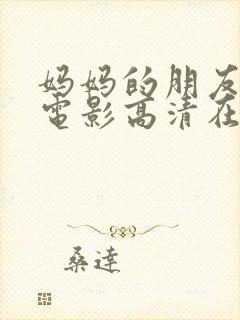 妈妈的朋友
電影高清在
桑達